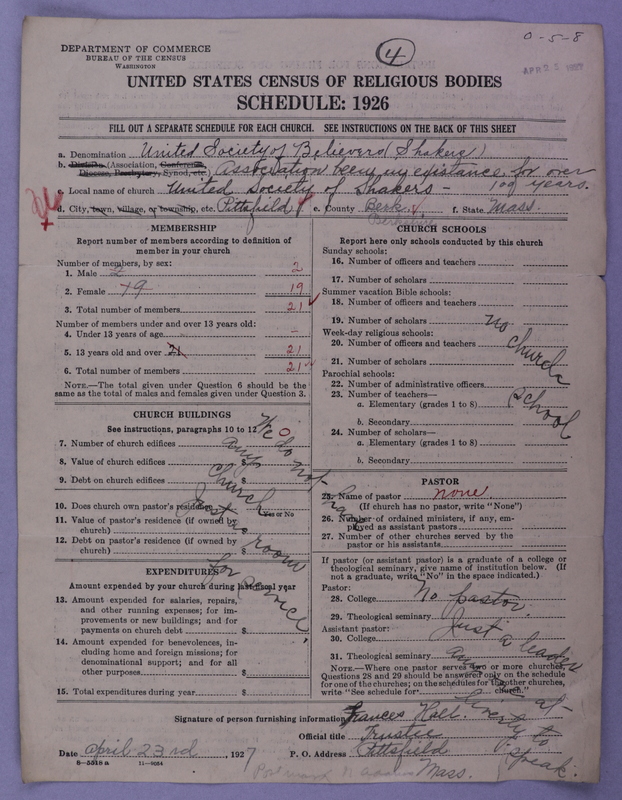 0-5-8
4
APR 25 1927
DEPARTMENT OF COMMERCE
BUREAU OF THE CENSUS
WASHINGTON
UNITED STATES CENSUS OF RELIGIOUS BODIES
SCHEDULE: 1926
FILL OUT A SEPARATE SCHEDULE FOR EACH CHURCH. SEE INSTRUCTIONS ON THE BACK OF THIS SHEET
a. Denomination United Society of Believers (Shakers)
b. Division (Association, Conference, Diocese, Presbytery, Synod, etc.) Association been in existance for over 100 years.
c. Local name of church United Society of Shakers —
d. City, town, village, or township, etc. Pittsfield e. County Berk. f. State Mass.
Berkshire
MEMBERSHIP
Report number of members according to definition of member in your church
Number of members, by sex:
1. Male 2 2
2. Female 19 19
3. Total number of members 21
Number of members under and over 13 years old:
4. Under 13 years of age –
5. 13 years old and over 21 21
6. Total number of members 21
NOTE.—The total given under Question 6 should be the same as the total of males and females given under Question 3.
CHURCH BUILDINGS
See instructions, paragraphs 10 to 12
7. Number of church edifices 0
8. Value of church edifices $
9. Debt on church edifices $
10. Does church own pastor's residence
Yes or No
11. Value of pastor's residence (if owned by church) $
12. Debt on pastor's residence (if owned by church) $
We do not have any church just a room for service,
EXPENDITURES
Amount expended by your church during last fiscal year
13. Amount expended for salaries, repairs, and other running expenses; for improvements or new buildings; and for payments on church debt $
14. Amount expended for benevolences, including home and foreign missions; for denominational support; and for all other purposes $
15. Total expenditures during year $
CHURCH SCHOOLS
Report here only schools conducted by this church
Sunday schools:
16. Number of officers and teachers
17. Number of scholars
Summer vacation Bible schools:
18. Number of officers and teachers
19. Number of scholars
Week-day religious schools:
20. Number of officers and teachers
21. Number of scholars
Parochial schools:
22. Number of administrative officers
23. Number of teachers—
a. Elementary (grades 1 to 8)
b. Secondary
24. Number of scholars—
a. Elementary (grades 1 to 8)
b. Secondary
No church School
PASTOR
25. Name of pastor none
(If church has no pastor, write "None")
26. Number of ordained ministers, if any, employed as assistant pastors
27. Number of other churches served by the pastor or his assistants
If pastor (or assistant pastor) is a graduate of a college or theological seminary, give name of institution below. (If not a graduate, write "No" in the space indicated.)
Pastor:
28. College No pastor.
29. Theological seminary Just a leader
Assistant pastor:
30. College
31. Theological seminary
at liberty to speak.
NOTE.—Where one pastor serves two or more churches, Questions 28 and 29 should be answered only on the schedule for one of the churches; on the schedules for the other churches, write "See schedule for church."
Signature of person furnishing information Frances Hall.
Official title Trustee
Date April 23rd, 1927 P. O. Address Pittsfield
Mass.
8-5518 a 11-9054